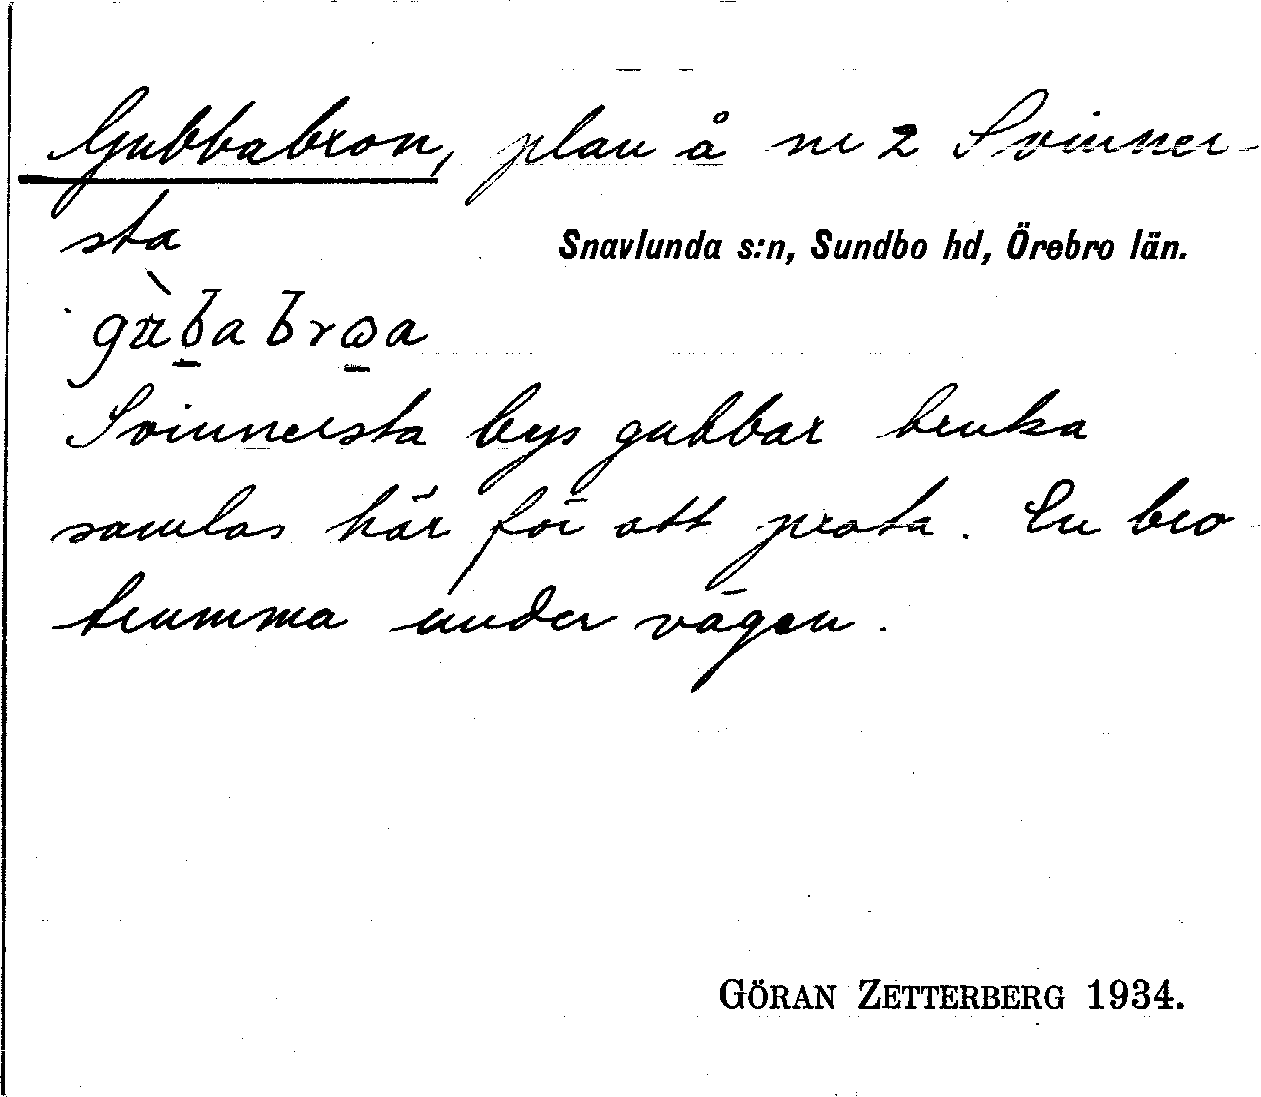 Gubbabron, plan å nr 2 Svinner-
sta
Snavlunda s:n, Sundbo hd, Örebro län.
Svinnersta bys gubbar bruka
samlas här för att prata. En bro
trumma under vägen.
GÖRAN ZETTERBERG 1934.